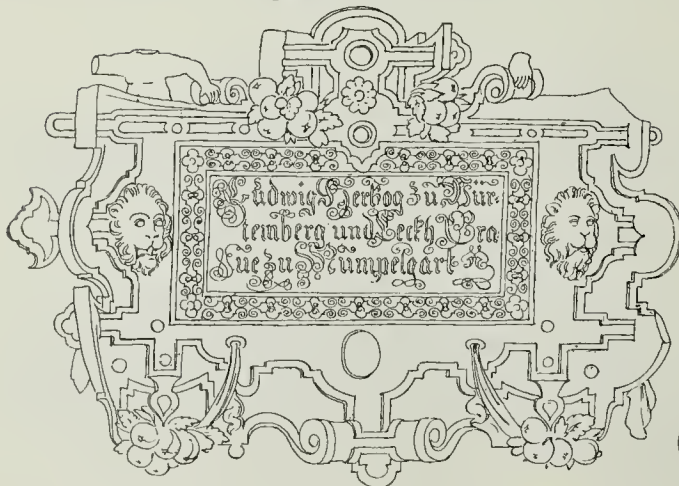 Ludwig Hertzog zu Wür-
temberg und Teckh Gra
fue zu Mümpelgart